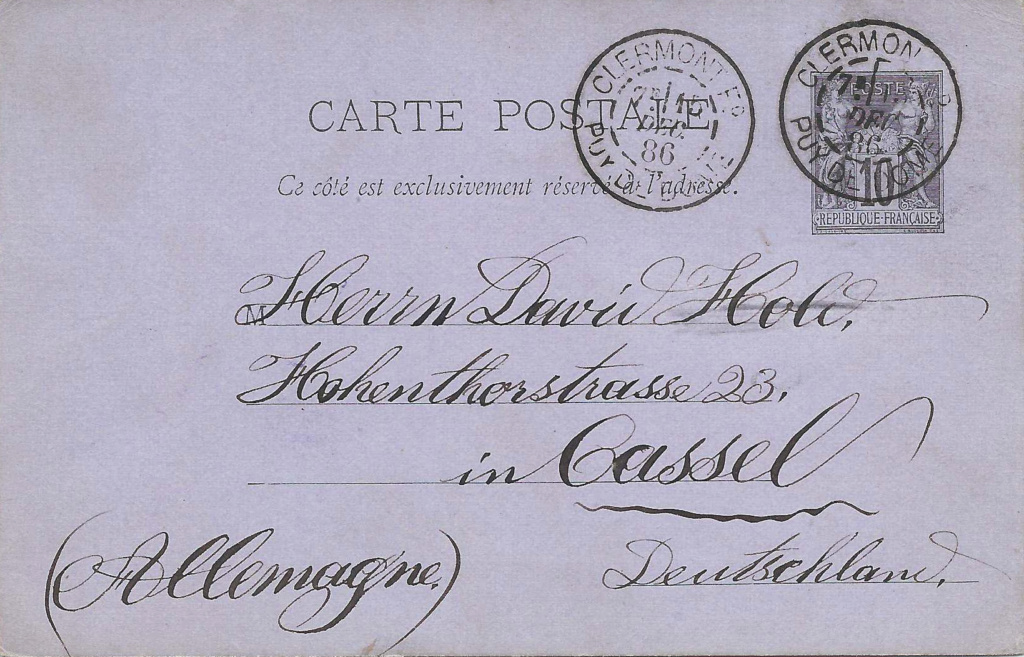 CARTE POSTALE
Ce côté est exclusivement réservé à l'adresse.
CLERMONT-FD
DEC.
86
PUY DE DOME
CLERMON FD
DEC
86
PUY DE DOME
POSTE
10
REPUBLIQUE FRANÇAISE
M
Herrn David
Hohenthorstrasse 23.
in Cassel
Deutschland.
(Allemagne.)